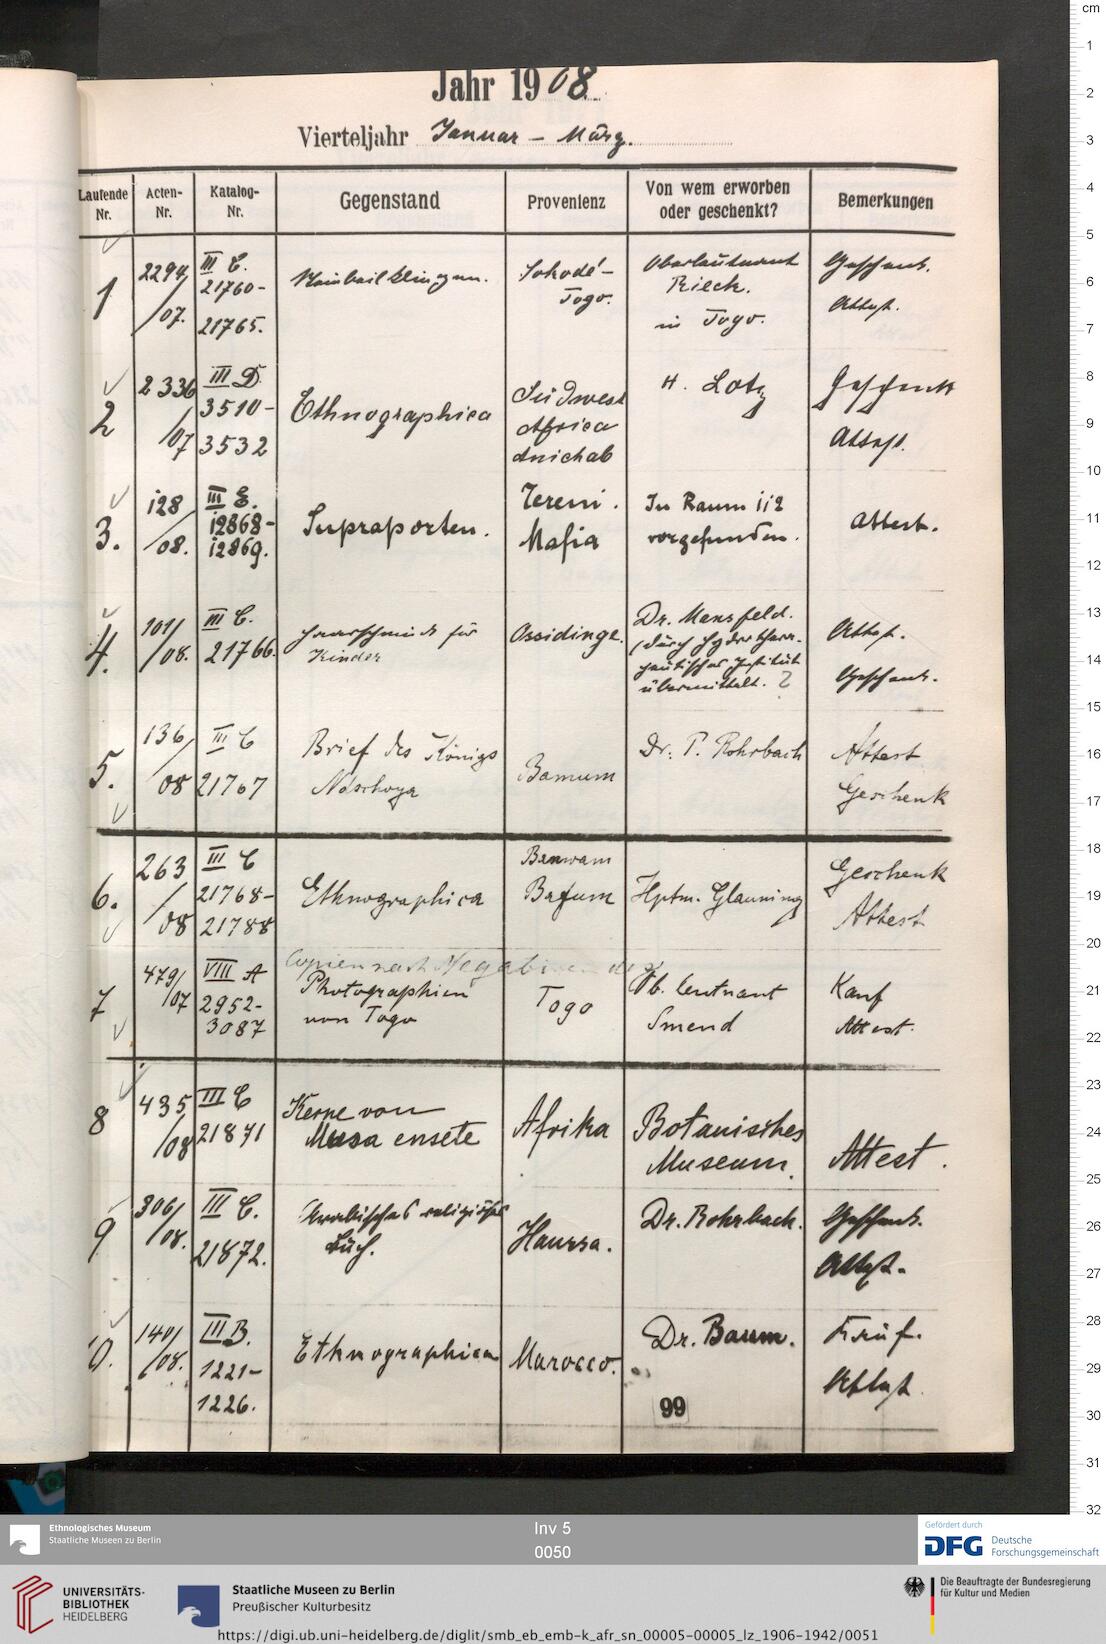 Jahr 1908
Vierteljahr Januar – März.
Laufende Nr.
Acten-Nr.
Katalog-Nr.
Gegenstand
Provenienz
Von wem erworben oder geschenkt?
Bemerkungen
1
2294/07.
III C.
21760-
21765.
Steinbeilklingen.
Sokodé-
Togo.
Oberleutnant
Rieck.
in Togo.
Geschenk.
Attest.
2
2336/07
III D
3510-
3532
Ethnographica
Südwest
Africa
Anichab
H. Lotz
Geschenk
Attest.
3.
128/08.
III E.
12868-
12869.
Supraporten.
Tereni.
Mafia
In Raum 112
vorgefunden.
Attest.
4.
101/08.
III C.
21766.
Haarschmuck für
Kinder
Ossidinge.
Dr. Mansfeld.
(durch
übermittelt. ?
Attest.
Geschenk.
5.
136/08
III C
21767
Brief des Königs
Noschoya
Bamum
Dr. P. Rohrbach
Attest
Geschenk
6.
263/08
III C
21768-
21788
Ethnographica
Bafum
Hptm. Glauning
Geschenk
Attest
7
479/07
VIII A
2952-
3087
Copien nach
Photographien
von Togo
Togo
Ob. leutnant
Smend
Kauf
Attest.
8
435/08
III C
21871
Kerne von
Musa ensete
Afrika
Botanisches
Museum.
Attest.
9
306/08.
III C.
21872.
Arabisches religiöses
Buch.
Haussa.
Dr. Rohrbach.
Geschenk.
Attest.
10.
140/08.
III B.
1221-
1226.
Ethnographica
Marocco.
Dr. Baum.
Kauf.
Attest.
99
cm
1
2
3
4
5
6
7
8
9
10
11
12
13
14
15
16
17
18
19
20
21
22
23
24
25
26
27
28
29
30
31
32
Ethnologisches Museum
Staatliche Museen zu Berlin
Inv 5
0050
Gefördert durch
DFG Deutsche
Forschungsgemeinschaft
UNIVERSITÄTS-
BIBLIOTHEK
HEIDELBERG
Staatliche Museen zu Berlin
Preußischer Kulturbesitz
Die Beauftragte der Bundesregierung
für Kultur und Medien
https://digi.ub.uni-heidelberg.de/diglit/smb_eb_emb-k_afr_sn_00005-00005_lz_1906-1942/0051